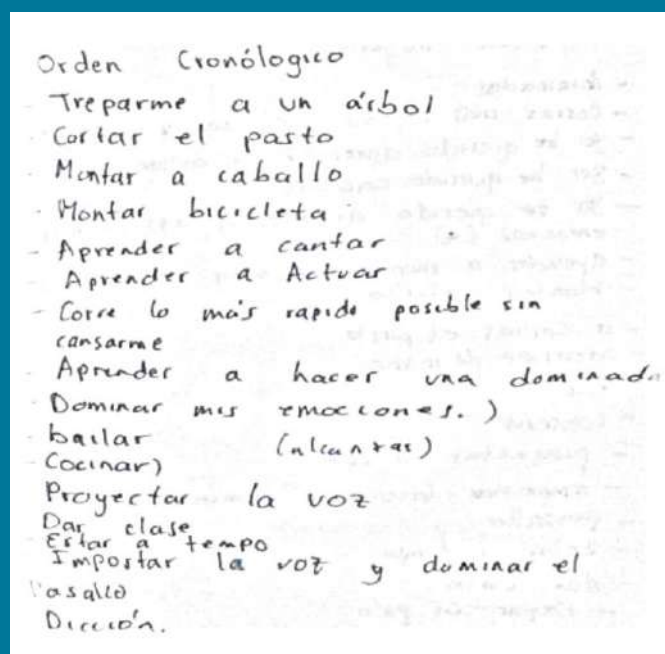 Orden Cronólogico
- Treparme a un árbol
- Cortar el pasto
- Montar a caballo
- Montar bicicleta
- Aprender a cantar
Aprender a Actuar
- Corre lo más rapido posible sin
cansarme
- Aprender a hacer una dominada
- Dominar mis emociones.)
- bailar (alcanzar)
- Cocinar)
Proyectar la voz
Dar clase
Estar a tempo
Impostar la voz y dominar el
Dicción.